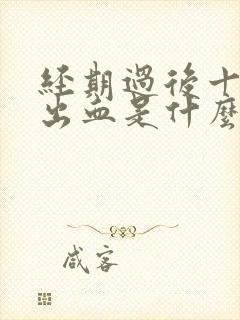 經期過後十
出血是什麼
咸客